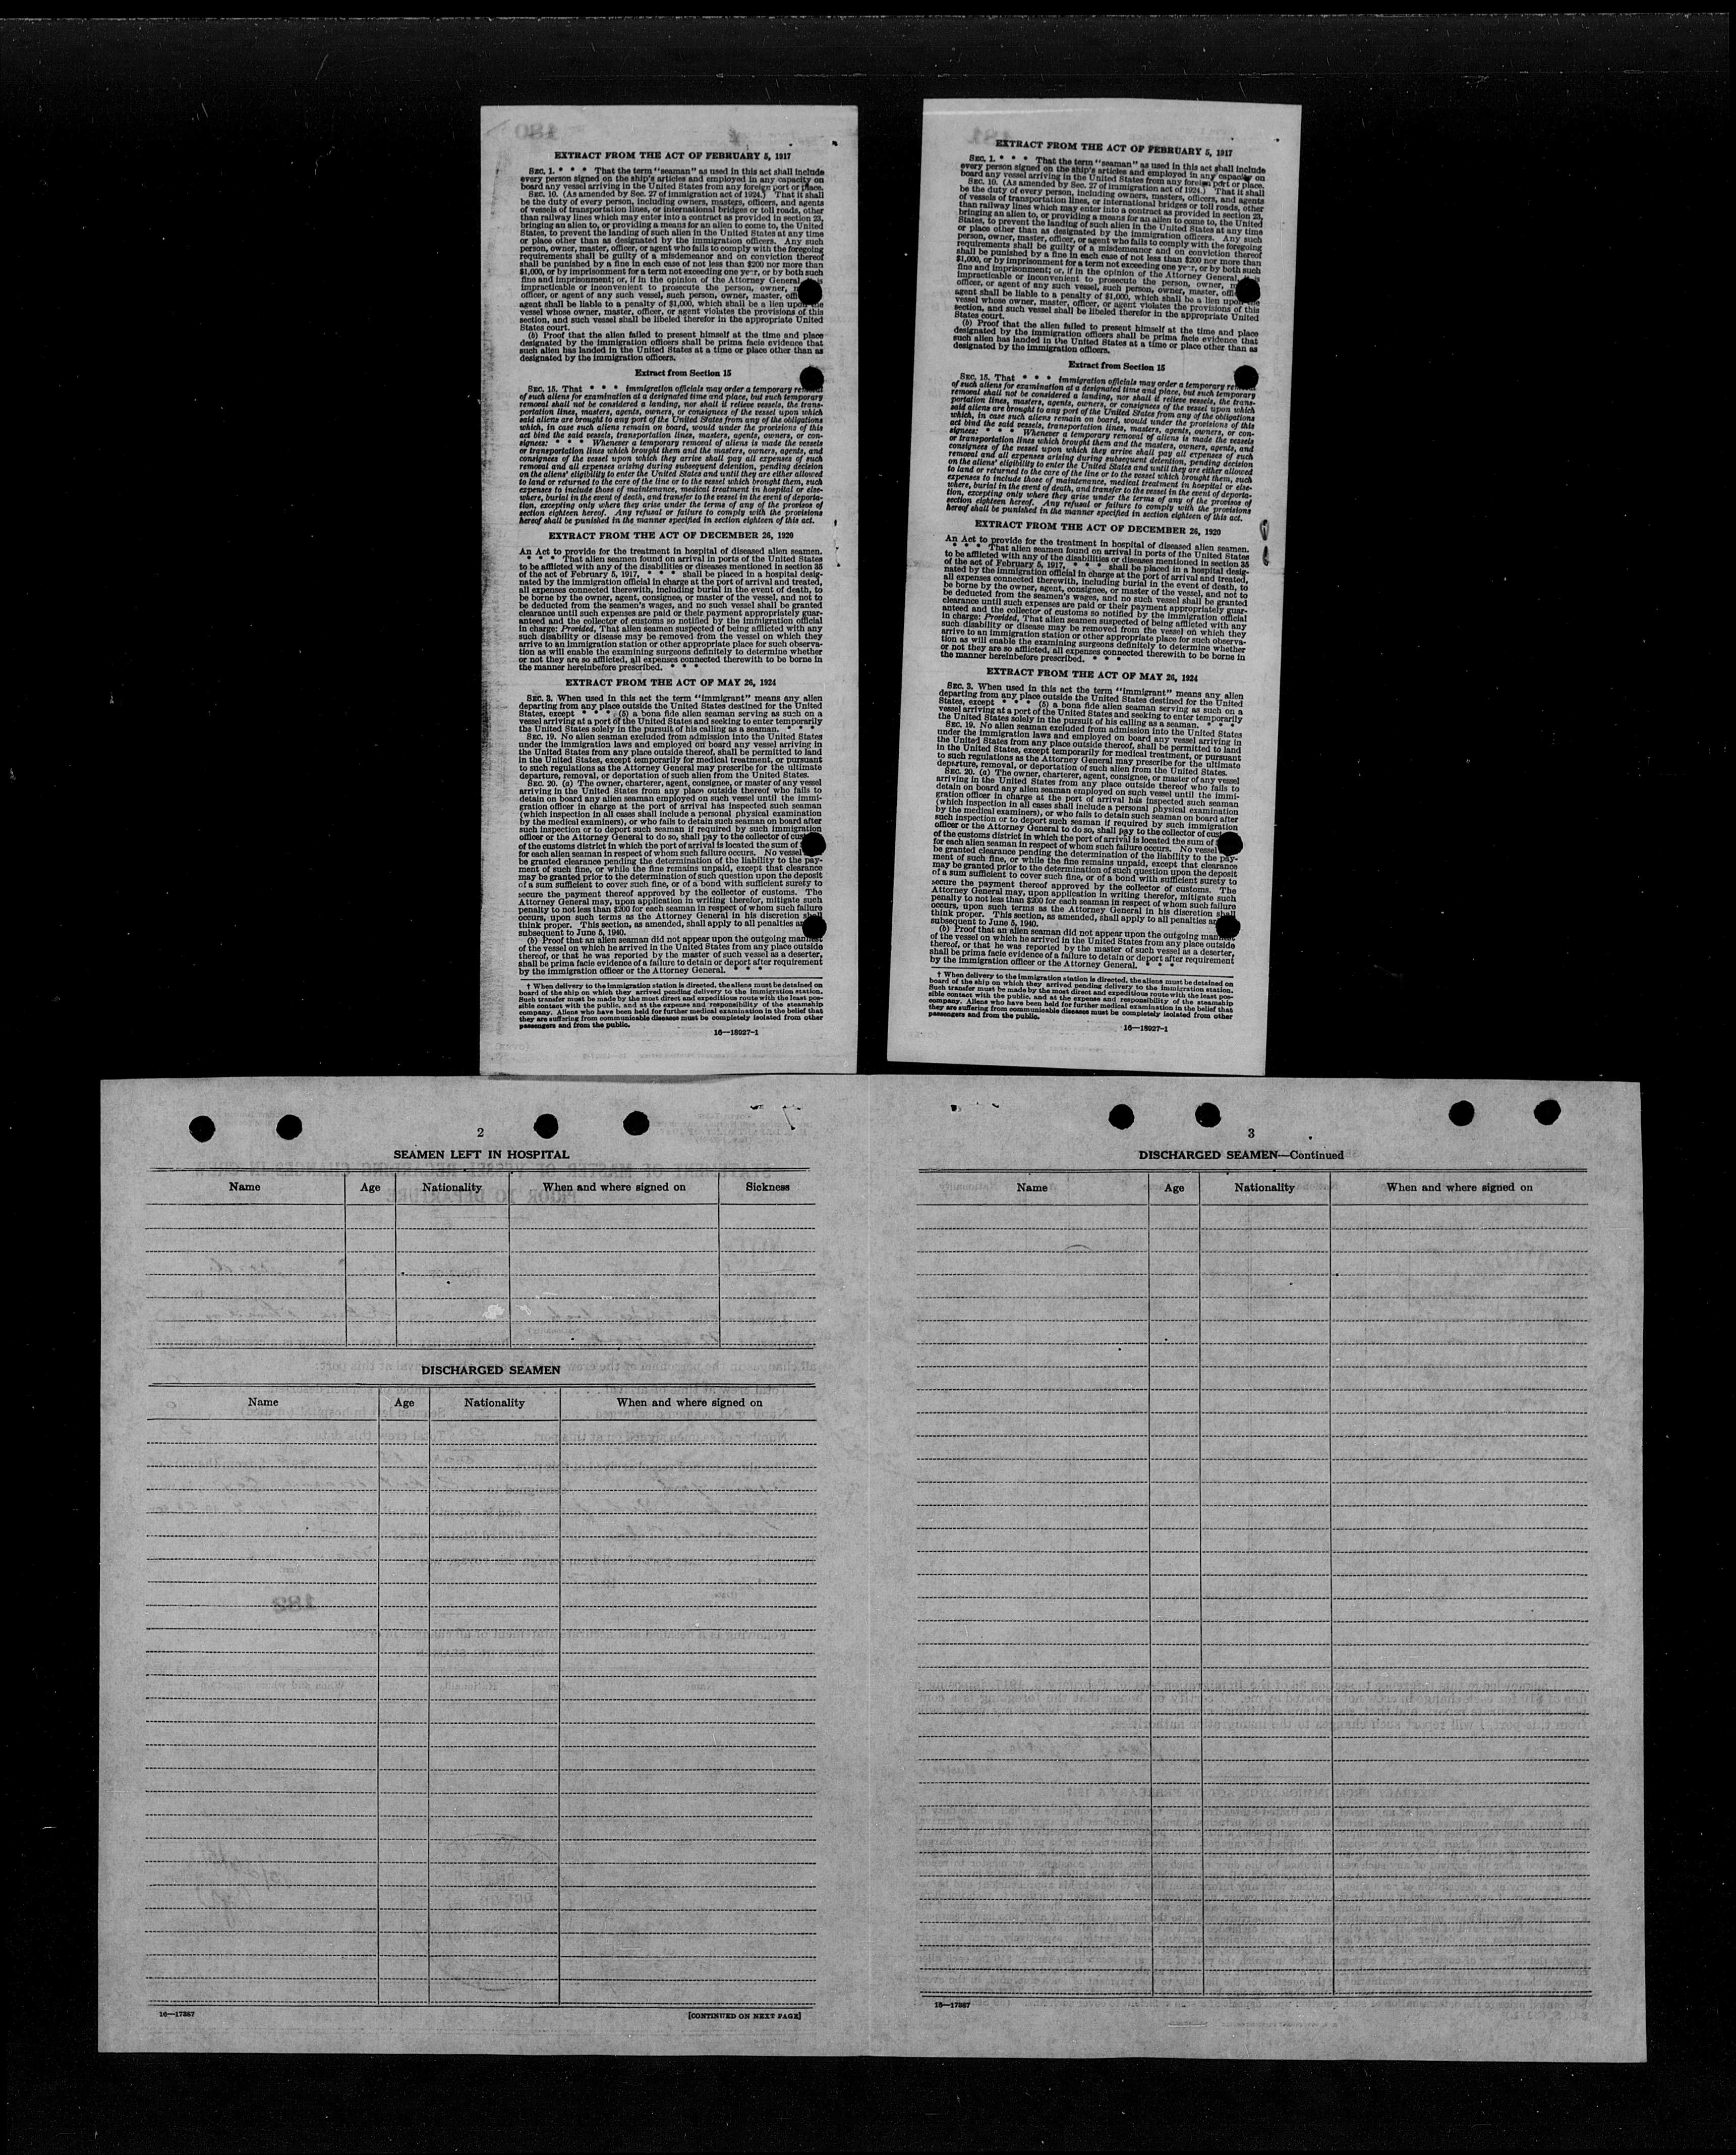 EXTRACT FROM THE ACT OF FEBRUARY 5, 1917
SEC. 1. * * * That the term "seaman" as used in this act shall include
every person signed on the ship's articles and employed in any capacity on
board any vessel arriving in the United States from any foreign port or place.
SEC. 10. (As amended by Sec. 27 of immigration act of 1924.) That it shall
be the duty of every person, including owners, masters, officers, and agents
of vessels of transportation lines, or international bridges or toll roads, other
than railway lines which may enter into a contract as provided in section 23,
bringing an alien to, or providing a means for an alien to come to, the United
States, to prevent the landing of such alien in the United States at any time
or place other than as designated by the immigration officers. Any such
person, owner, master, officer, or agent who fails to comply with the foregoing
requirements shall be guilty of a misdemeanor and on conviction thereof
shall be punished by a fine in each case of not less than $200 nor more than
$1,000, or by imprisonment for a term not exceeding one year, or by both such
fine and imprisonment; or, if in the opinion of the Attorney General
impracticable or inconvenient to prosecute the person, owner,
officer, or agent of any such vessel, such person, owner, master,
agent shall be liable to a penalty of $1,000, which shall be a lien upon the
vessel whose owner, master, officer, or agent violates the provisions of this
section, and such vessel shall be libeled therefor in the appropriate United
States court.
(b) Proof that the alien failed to present himself at the time and place
designated by the immigration officers shall be prima facie evidence that
such alien has landed in the United States at a time or place other than as
designated by the immigration officers.
Extract from Section 15
SEC. 15. That * * * immigration officials may order a temporary
of such aliens for examination at a designated time and place, but such temporary
removal shall not be considered a landing, nor shall it relieve vessels, the trans-
portation lines, masters, agents, owners, or consignees of the vessel upon which
said aliens are brought to any port of the United States from any of the obligations
which, in case such aliens remain on board, would under the provisions of this
act bind the said vessels, transportation lines, masters, agents, owners, or con-
signees: * * * Whenever a temporary removal of aliens is made the vessels
or transportation lines which brought them and the masters, owners, agents, and
consignees of the vessel upon which they arrive shall pay all expenses of such
removal and all expenses arising during subsequent detention, pending decision
on the aliens' eligibility to enter the United States and until they are either allowed
to land or returned to the care of the line or to the vessel which brought them, such
expenses to include those of maintenance, medical treatment in hospital or else-
where, burial in the event of death, and transfer to the vessel in the event of deporta-
tion, excepting only where they arise under the terms of any of the provisos of
section eighteen hereof. Any refusal or failure to comply with the provisions
hereof shall be punished in the manner specified in section eighteen of this act.
EXTRACT FROM THE ACT OF DECEMBER 26, 1920
An Act to provide for the treatment in hospital of diseased alien seamen.
* * * That alien seamen found on arrival in ports of the United States
to be afflicted with any of the disabilities or diseases mentioned in section 35
of the act of February 5, 1917, * * * shall be placed in a hospital desig-
nated by the immigration official in charge at the port of arrival and treated,
all expenses connected therewith, including burial in the event of death, to
be borne by the owner, agent, consignee, or master of the vessel, and not to
be deducted from the seamen's wages, and no such vessel shall be granted
clearance until such expenses are paid or their payment appropriately guar-
anteed and the collector of customs so notified by the immigration official
in charge: Provided, That alien seamen suspected of being afflicted with any
such disability or disease may be removed from the vessel on which they
arrive to an immigration station or other appropriate place for such observa-
tion as will enable the examining surgeons definitely to determine whether
or not they are so afflicted, all expenses connected therewith to be borne in
the manner hereinbefore prescribed. * * *
EXTRACT FROM THE ACT OF MAY 26, 1924
SEC. 3. When used in this act the term "immigrant" means any alien
departing from any place outside the United States destined for the United
States, except * * * (5) a bona fide alien seaman serving as such on a
vessel arriving at a port of the United States and seeking to enter temporarily
the United States solely in the pursuit of his calling as a seaman. * * *
SEC. 19. No alien seaman excluded from admission into the United States
under the immigration laws and employed on board any vessel arriving in
the United States from any place outside thereof, shall be permitted to land
in the United States, except temporarily for medical treatment, or pursuant
to such regulations as the Attorney General may prescribe for the ultimate
departure, removal, or deportation of such alien from the United States.
SEC. 20. (a) The owner, charterer, agent, consignee, or master of any vessel
arriving in the United States from any place outside thereof who fails to
detain on board any alien seaman employed on such vessel until the immi-
gration officer in charge at the port of arrival has inspected such seaman
(which inspection in all cases shall include a personal physical examination
by the medical examiners), or who fails to detain such seaman on board after
such inspection or to deport such seaman if required by such immigration
officer or the Attorney General to do so, shall pay to the collector of
of the customs district in which the port of arrival is located the sum of
for each alien seaman in respect of whom such failure occurs. No vessel
be granted clearance pending the determination of the liability to the pay-
ment of such fine, or while the fine remains unpaid, except that clearance
may be granted prior to the determination of such question upon the deposit
of a sum sufficient to cover such fine, or of a bond with sufficient surety to
secure the payment thereof approved by the collector of customs. The
Attorney General may, upon application in writing therefor, mitigate such
penalty to not less than $200 for each seaman in respect of whom such failure
occurs, upon such terms as the Attorney General in his discretion shall
think proper. This section, as amended, shall apply to all penalties
subsequent to June 5, 1940.
(b) Proof that an alien seaman did not appear upon the outgoing manifest
of the vessel on which he arrived in the United States from any place outside
thereof, or that he was reported by the master of such vessel as a deserter,
shall be prima facie evidence of a failure to detain or deport after requirement
by the immigration officer or the Attorney General. * * *
† When delivery to the immigration station is directed, the aliens must be detained on
board of the ship on which they arrived pending delivery to the immigration station.
Such transfer must be made by the most direct and expeditious route with the least pos-
sible contact with the public, and at the expense and responsibility of the steamship
company. Aliens who have been held for further medical examination in the belief that
they are suffering from communicable diseases must be completely isolated from other
passengers and from the public.
16—18927-1
EXTRACT FROM THE ACT OF FEBRUARY 5, 1917
SEC. 1. * * * That the term "seaman" as used in this act shall include
every person signed on the ship's articles and employed in any capacity on
board any vessel arriving in the United States from any foreign port or place.
SEC. 10. (As amended by Sec. 27 of immigration act of 1924.) That it shall
be the duty of every person, including owners, masters, officers, and agents
of vessels of transportation lines, or international bridges or toll roads, other
than railway lines which may enter into a contract as provided in section 23,
bringing an alien to, or providing a means for an alien to come to, the United
States, to prevent the landing of such alien in the United States at any time
or place other than as designated by the immigration officers. Any such
person, owner, master, officer, or agent who fails to comply with the foregoing
requirements shall be guilty of a misdemeanor and on conviction thereof
shall be punished by a fine in each case of not less than $200 nor more than
$1,000, or by imprisonment for a term not exceeding one year, or by both such
fine and imprisonment; or, if in the opinion of the Attorney General
impracticable or inconvenient to prosecute the person, owner,
officer, or agent of any such vessel, such person, owner, master,
agent shall be liable to a penalty of $1,000, which shall be a lien upon the
vessel whose owner, master, officer, or agent violates the provisions of this
section, and such vessel shall be libeled therefor in the appropriate United
States court.
(b) Proof that the alien failed to present himself at the time and place
designated by the immigration officers shall be prima facie evidence that
such alien has landed in the United States at a time or place other than as
designated by the immigration officers.
Extract from Section 15
SEC. 15. That * * * immigration officials may order a temporary
of such aliens for examination at a designated time and place, but such temporary
removal shall not be considered a landing, nor shall it relieve vessels, the trans-
portation lines, masters, agents, owners, or consignees of the vessel upon which
said aliens are brought to any port of the United States from any of the obligations
which, in case such aliens remain on board, would under the provisions of this
act bind the said vessels, transportation lines, masters, agents, owners, or con-
signees: * * * Whenever a temporary removal of aliens is made the vessels
or transportation lines which brought them and the masters, owners, agents, and
consignees of the vessel upon which they arrive shall pay all expenses of such
removal and all expenses arising during subsequent detention, pending decision
on the aliens' eligibility to enter the United States and until they are either allowed
to land or returned to the care of the line or to the vessel which brought them, such
expenses to include those of maintenance, medical treatment in hospital or else-
where, burial in the event of death, and transfer to the vessel in the event of deporta-
tion, excepting only where they arise under the terms of any of the provisos of
section eighteen hereof. Any refusal or failure to comply with the provisions
hereof shall be punished in the manner specified in section eighteen of this act.
EXTRACT FROM THE ACT OF DECEMBER 26, 1920
An Act to provide for the treatment in hospital of diseased alien seamen.
* * * That alien seamen found on arrival in ports of the United States
to be afflicted with any of the disabilities or diseases mentioned in section 35
of the act of February 5, 1917, * * * shall be placed in a hospital desig-
nated by the immigration official in charge at the port of arrival and treated,
all expenses connected therewith, including burial in the event of death, to
be borne by the owner, agent, consignee, or master of the vessel, and not to
be deducted from the seamen's wages, and no such vessel shall be granted
clearance until such expenses are paid or their payment appropriately guar-
anteed and the collector of customs so notified by the immigration official
in charge: Provided, That alien seamen suspected of being afflicted with any
such disability or disease may be removed from the vessel on which they
arrive to an immigration station or other appropriate place for such observa-
tion as will enable the examining surgeons definitely to determine whether
or not they are so afflicted, all expenses connected therewith to be borne in
the manner hereinbefore prescribed. * * *
EXTRACT FROM THE ACT OF MAY 26, 1924
SEC. 3. When used in this act the term "immigrant" means any alien
departing from any place outside the United States destined for the United
States, except * * * (5) a bona fide alien seaman serving as such on a
vessel arriving at a port of the United States and seeking to enter temporarily
the United States solely in the pursuit of his calling as a seaman. * * *
SEC. 19. No alien seaman excluded from admission into the United States
under the immigration laws and employed on board any vessel arriving in
the United States from any place outside thereof, shall be permitted to land
in the United States, except temporarily for medical treatment, or pursuant
to such regulations as the Attorney General may prescribe for the ultimate
departure, removal, or deportation of such alien from the United States.
SEC. 20. (a) The owner, charterer, agent, consignee, or master of any vessel
arriving in the United States from any place outside thereof who fails to
detain on board any alien seaman employed on such vessel until the immi-
gration officer in charge at the port of arrival has inspected such seaman
(which inspection in all cases shall include a personal physical examination
by the medical examiners), or who fails to detain such seaman on board after
such inspection or to deport such seaman if required by such immigration
officer or the Attorney General to do so, shall pay to the collector of
of the customs district in which the port of arrival is located the sum of
for each alien seaman in respect of whom such failure occurs. No vessel
be granted clearance pending the determination of the liability to the pay-
ment of such fine, or while the fine remains unpaid, except that clearance
may be granted prior to the determination of such question upon the deposit
of a sum sufficient to cover such fine, or of a bond with sufficient surety to
secure the payment thereof approved by the collector of customs. The
Attorney General may, upon application in writing therefor, mitigate such
penalty to not less than $200 for each seaman in respect of whom such failure
occurs, upon such terms as the Attorney General in his discretion shall
think proper. This section, as amended, shall apply to all penalties
subsequent to June 5, 1940.
(b) Proof that an alien seaman did not appear upon the outgoing manifest
of the vessel on which he arrived in the United States from any place outside
thereof, or that he was reported by the master of such vessel as a deserter,
shall be prima facie evidence of a failure to detain or deport after requirement
by the immigration officer or the Attorney General. * * *
† When delivery to the immigration station is directed, the aliens must be detained on
board of the ship on which they arrived pending delivery to the immigration station.
Such transfer must be made by the most direct and expeditious route with the least pos-
sible contact with the public, and at the expense and responsibility of the steamship
company. Aliens who have been held for further medical examination in the belief that
they are suffering from communicable diseases must be completely isolated from other
passengers and from the public.
16—18927-1
2
SEAMEN LEFT IN HOSPITAL
Name Age Nationality When and where signed on Sickness
DISCHARGED SEAMEN
Name Age Nationality When and where signed on
16—17387 [CONTINUED ON NEXT PAGE]
3
DISCHARGED SEAMEN—Continued
Name Age Nationality When and where signed on
16—17387